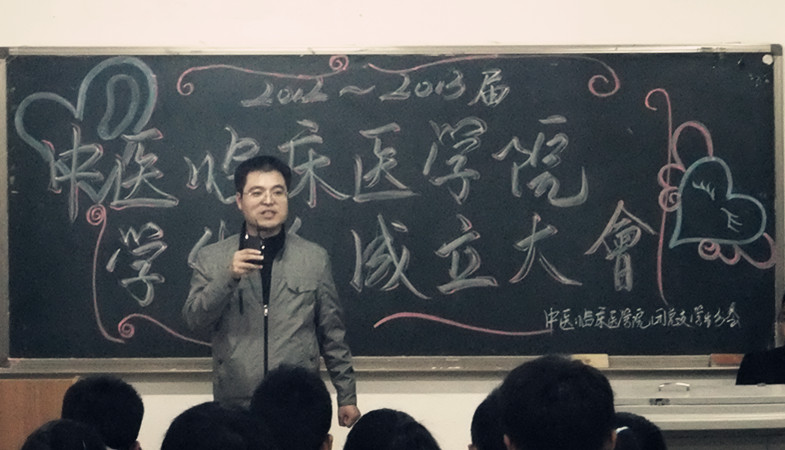 2012～2013届
中医临床医学院
学生 成立大會
中医临床医学院团总支学生分会